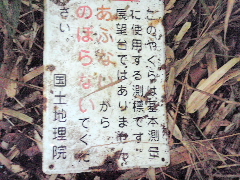 このやぐらは基本測量
に使用する測標です
展望台ではありません
あぶないから
のぼらないでくだ
さい
国土地理院